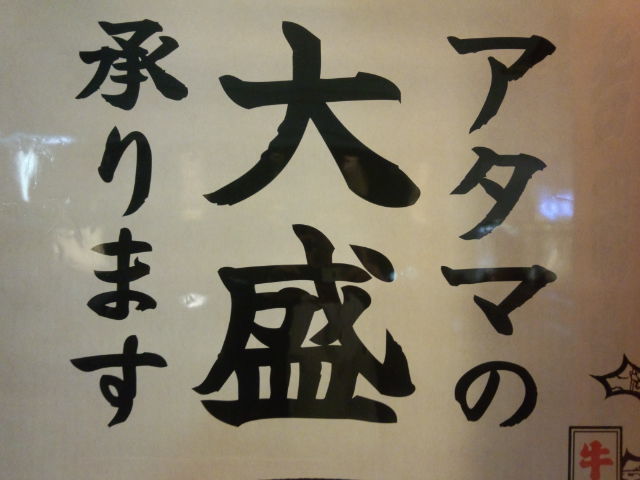 アタマの
大盛
承ります
牛